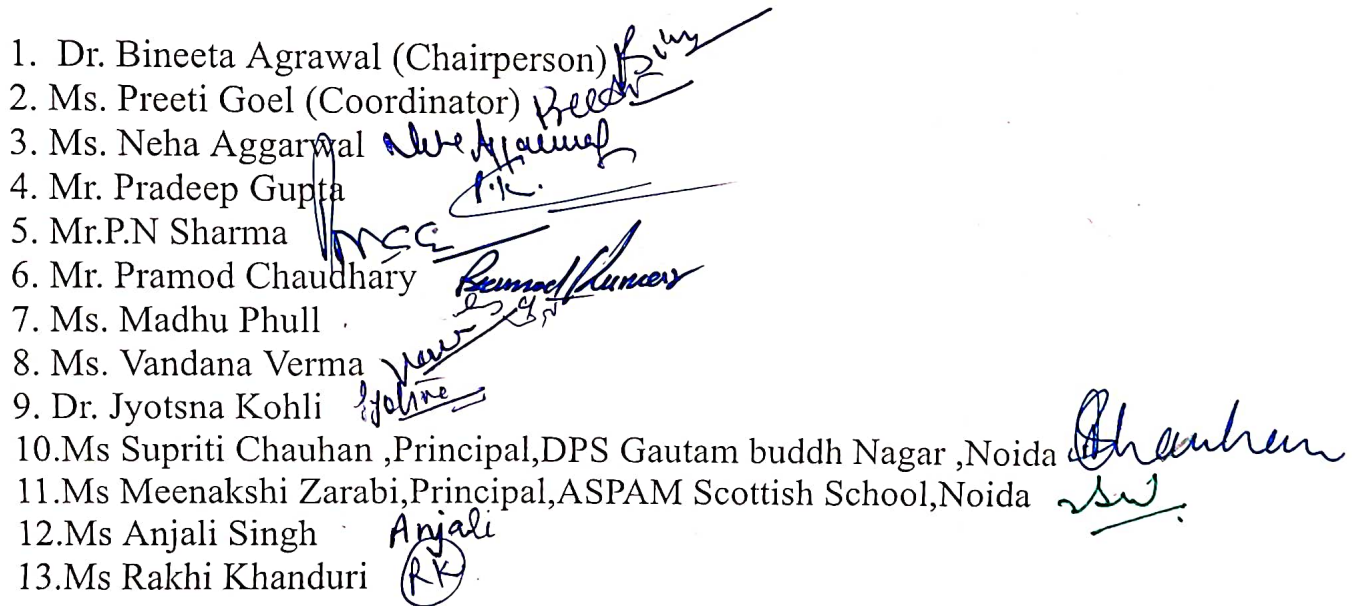 1. Dr. Bineeta Agrawal (Chairperson)
2. Ms. Preeti Goel (Coordinator) Preeti
3. Ms. Neha Aggarwal Neha Aggarwal
4. Mr. Pradeep Gupta P.K.
5. Mr.P.N Sharma
6. Mr. Pramod Chaudhary Pramod Kumar
7. Ms. Madhu Phull
8. Ms. Vandana Verma
9. Dr. Jyotsna Kohli
10.Ms Supriti Chauhan ,Principal,DPS Gautam buddh Nagar ,Noida Chauhan
11.Ms Meenakshi Zarabi,Principal,ASPAM Scottish School,Noida
12.Ms Anjali Singh Anjali
13.Ms Rakhi Khanduri RK